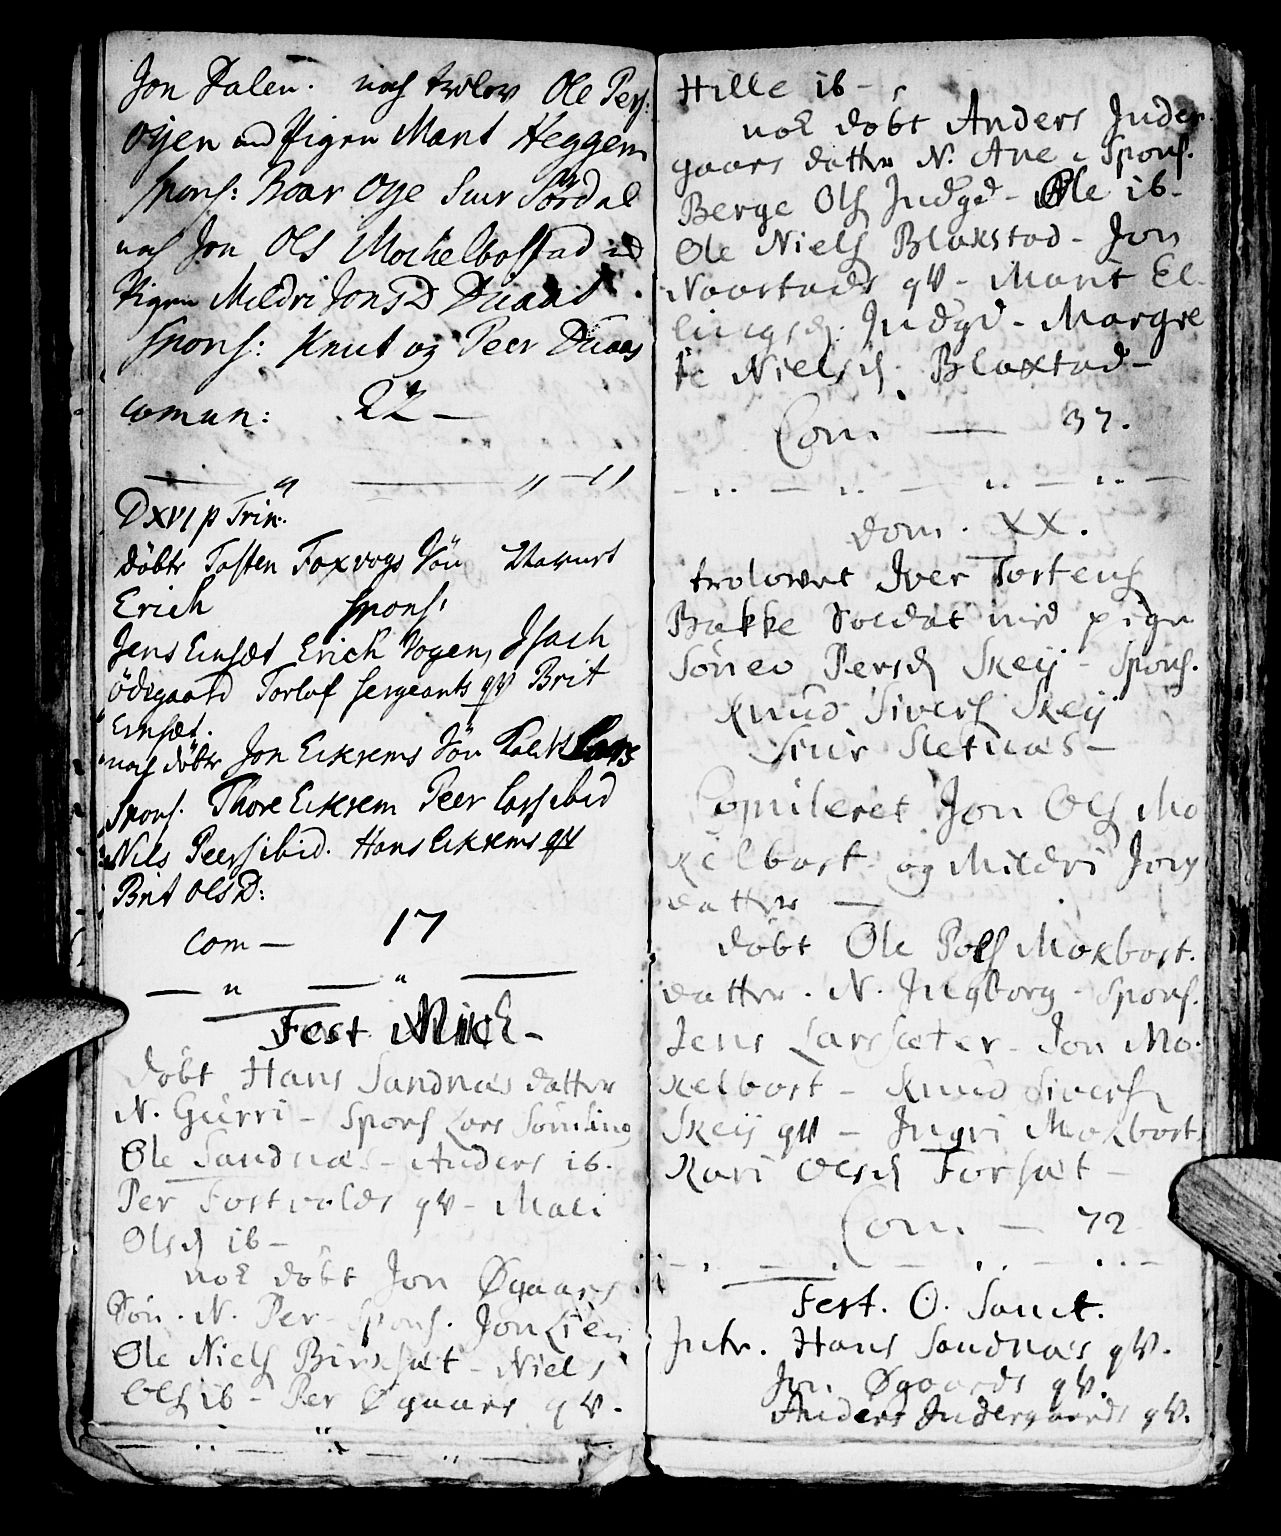 Jon Dalen. nock trolov Ole Pers:
Øyen and Pigen Marit Heggem
Spons: Roar Øye Siur Sördal
nock Jon Ols Mochelbostad
Pigen Mildri JonsD Duaas
Spons: Knut og Peer Duaas
comun: 22 –
D XVI p Trin.
döbte Tosten Foxvogs Sön Navnet
Erich Spons:
Jens Einsæt Erich Vogen, Isach
Ödegaard Torlof sergeants qV Brit
Einsæt.
noch döbte Jon Eikrems Sön Lars
Spons. Thore Eikrem Peer Lars ibid
Nils Peersibid. Hans Eikrems qV
Brit OlsD:
com – 17
Fest Mich –
döbt Hans Sandnæs datter
N. Gurri – Spons Lars
Ole Sandnæs – Anders ib.
Per Fostvolds qV – Mali
Olsd ib –
nok döbt Jon Øgaars
Sön. N. Per – Spons. Jon Lien
Ole Niels Birkset – Niels
Ols ib – Per Øgaars qV.
Hille ib –
nok döbt Anders Inder
gaars datter N. Ane, Spons.
Berge Ols Indgd – Ole ib –
Ole Niels Blakstad – Jon
Naastads qV – Marit El-
lingsd. Indgd – Margre
te Nielsd. Blakstad –
Com. — 37.
Dom. XX.
trolovet Iver Tostens
Bakke Soldat med pign
Sönev Persd Skeij – Spons.
Knud Sivers Skeij
Siur Sletnæs –
Copuleret Jon Ols Mo
kelbost og Mildri Jons
datter —
döbt Ole Pols Mokbost.
datter. N. Ingborg – Spons.
Jens Larssæter – Jon Mo-
kelbost – Knud Sivers
Skeij qV – Ingri Mokbost
Kari Olsd Forsæt –
Com. — 72
Fest. O. Sanct.
Intr. Hans Sandnæs qV.
Jon Øgaards qV.
Anders Indergaards qV.